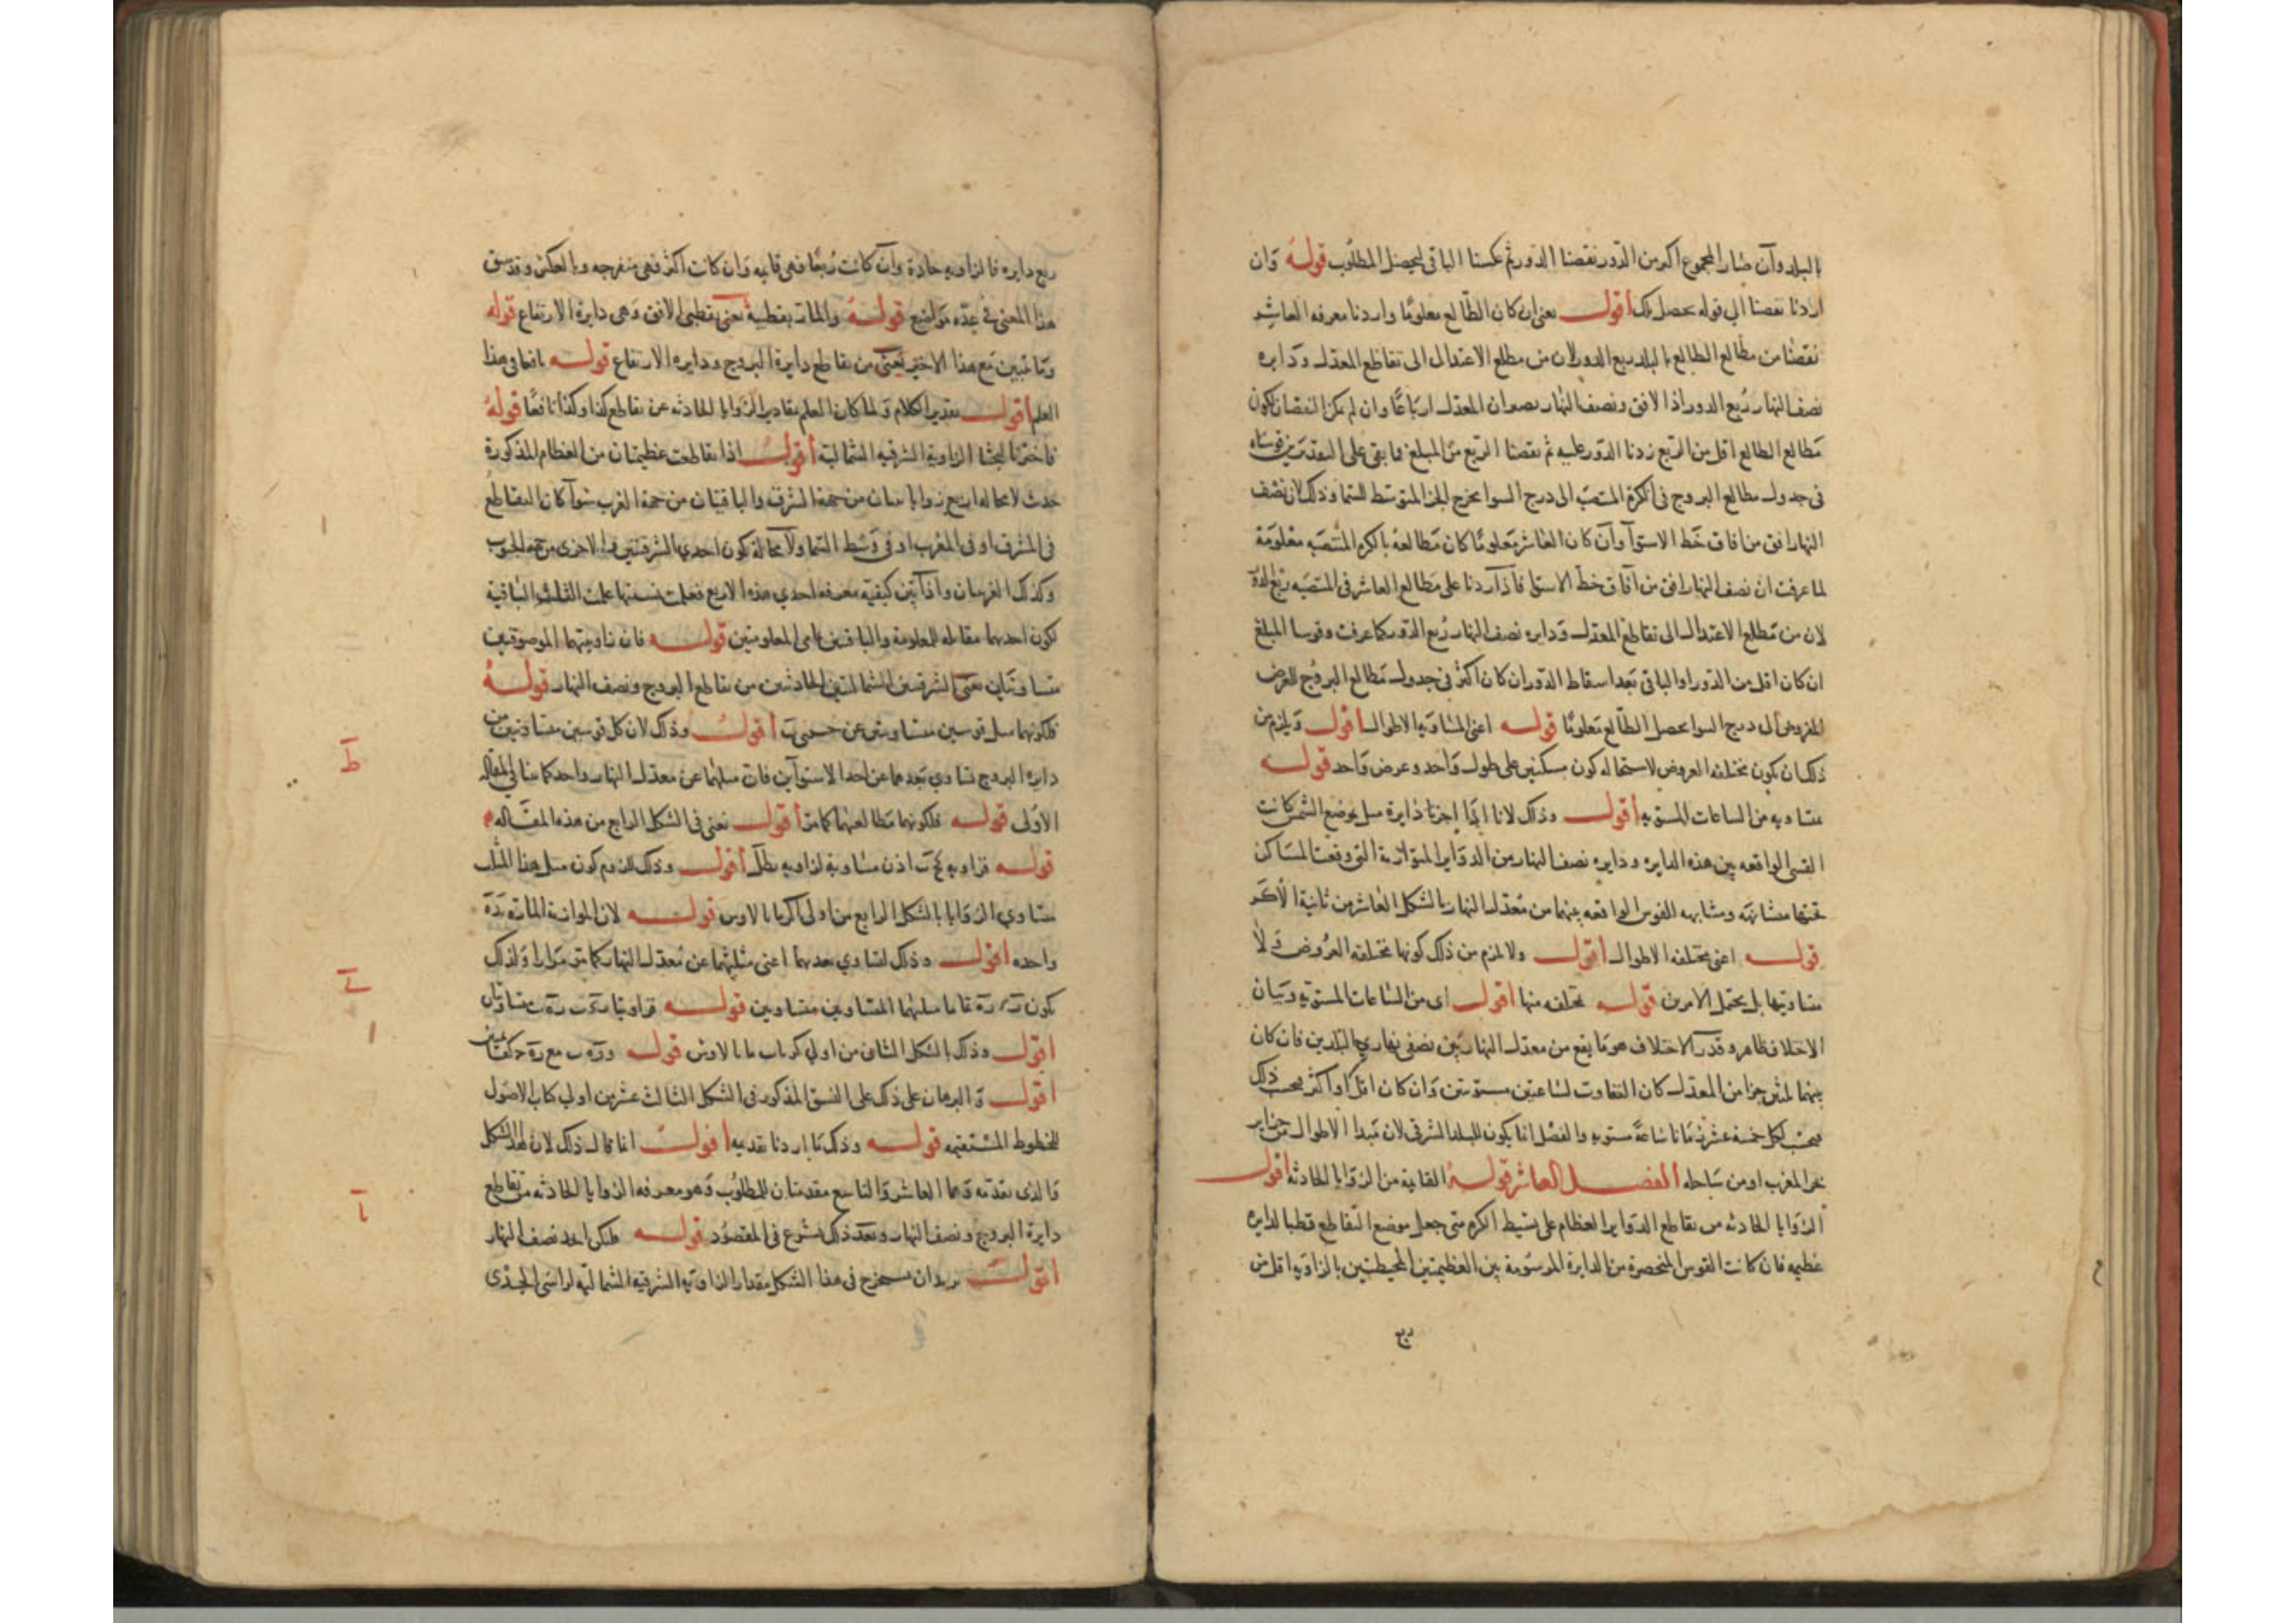 بالبلد وان صار المجموع اكثر من الدور نقصنا الدور ثم عكسنا الباقى ليحصل المطلوب قوله وان
اردنا نقصنا الى قوله يحصل ذلك أقول يعنى ان كان الطالع معلومًا واردنا معرفه العاشر
نقصنا من مطالع الطالع بالبلد ربع الدور لان من مطلع الاعتدال الى تقاطع المعدل ودايره
نصف النهار ربع الدور اذ الافق ونصف النهار يصيران المعدل ارباعًا وان لم يمكن النقصان لكون
مطالع الطالع اقل من الربع زدنا الدور عليه ثم نقصنا الربع من المبلغ فما بقى على التقديرين قوسناه
فى جدول مطالع البروج فى الكرة المنتصبة الى درج السوا يخرج الجز المتوسط للسما وذلك لان نصف
النهار افق من افاق خط الاستوآ وان كان العاشر معلومًا كان مطالعه بالكره المنتصبه معلومة
لما عرفت ان نصف النهار افق من آفاق خط الاستوا فاذا زدنا على مطالع العاشر فى المنتصبه ربع الدور
لان من مطلع الاعتدال الى تقاطع المعدل ودايره نصف النهار ربع الدور كما عرفت وقوسنا المبلغ
ان كان اقل من الدور او الباقى بعد اسقاط الدور ان كان اكثر فى جدول مطالع البروج للعرض
المفروض الى درج السوا يحصل الطالع معلومًا قوله اعنى المتساويه الاطوال أقول ويلزم من
ذلك ان يكون مختلفه العروض لاستحاله كون مسكنين على طول واحد وعرض واحد قوله
متساويه من الساعات المستويه أقول وذلك لانا اذا اجزنا دايرة ميل بموضع الشمس كانت
القسى الواقعه بين هذه الدايره ودايره نصف النهار من الدواير المتوازية التى وقعت المساكن
تحتها متشابهه ومشابهه للقوس الواقعه بينهما من معدل النهار بالشكل العاشر من ثانية الاكر
قوله اعنى مختلفه الاطوال أقول ولا يلزم من ذلك كونها مختلفه العروض ولا
متساويتها بل يحتمل الامرين قوله مختلفه منها أقول اى من الساعات المستويه وبيان
الاختلاف ظاهر وقدر الاختلاف هو ما يقع من معدل النهار بين نصفى نهارى البلدين فان كان
بينهما ثلثين جزا من المعدل كان التفاوت لساعتين مستويتين وان كان اقل او اكثر بحسب ذلك
فيحسب لكل خمسة عشر زمانا ساعة مستويه والفضل انما يكون للبلد الشرقى لان مبدا الاطوال من جزاير
بحر المغرب او من ساحله الفصل العاشر قوله الفانية من الزوايا الحادثه أقول
الزوايا الحادثه من تقاطع الدواير العظام على بسيط الكره متى جعل موضع التقاطع قطبا لدايره
عظيمه فان كانت القوس المنحصرة من الدايرة المرسومة بين العظيمتين المحيطتين بالزاويه اقل من
ربع
ربع دايره فالزاويه حادة وان كانت ربعًا فهى قايمه وان كانت اكثر فهى منفرجه وبالعكس وقد سبق
هذا المعنى فى عدّه مواضع قوله والمارة بقطبيه يعنى بقطبى الافق وهى دايرة الارتفاع قوله
وما تبين مع هذا الاخير يعنى من تقاطع دايرة البروج ودايره الارتفاع قوله نافعا فى هذا
العلم أقول تقدير الكلام ولما كان العلم بمقادير الزوايا الحادثه عن تقاطع كذا وكذا نافعًا قوله
فاخترنا لبحثنا الزاوية الشرقيه الشمالية أقول اذا تقاطعت عظيمتان من العظام المذكورة
حدث لا محاله اربع زوايا ثنتان من جهة الشرق والباقيتان من جهة الغرب سوآ كان التقاطع
فى المشرق او فى المغرب او فى وسط السما ولا محالة يكون احدى الشرقيتين والاخرى من جهة الجنوب
وكذلك الغربيتان واذا تبين كيفيه معرفه احدى هذه الاربع فعلمت نسبتها علمت الثلث الباقية
لكون احديها مقابله للمعلومة والباقيتين تمامى المعلومتين قوله فان زاويتيهما الموصوفتين
متساويتان يعنى الشرقيتين الشماليتين الحادثتين من تقاطع البروج ونصف النهار قوله
فلكونهما ميل قوسين متساويتين عن جنبتى ب أقول وذلك لان كل قوسين متساويتين من
دايرة البروج تساوى بعدهما عن احد الاستوآين فان ميليهما عن معدل النهار واحد كما بينا فى المقاله
الاولى قوله فلكونهما مطالعهما كما مر أقول يعنى فى الشكل الرابع من هذه المقاله
قوله فزاويه اذن مساوية لزاويه أقول وذلك للزوم كون مثل هذا المثلث
متساوى الزوايا بالشكل الرابع من اولى اكر مانالاوس قوله لان الموازية المارة
واحده أقول وذلك لتساوى بعديهما اعنى ميليهما عن معدل النهار كما مر مرارا ولذلك
يكون تماما ميليهما المتساويين متساويين قوله فزاويتا متساويتان
أقول وذلك بالشكل الثامن من اولى كتاب مانالاوس قوله مع كقائمتين
أقول والبرهان على ذلك على النسق المذكور فى الشكل الثالث عشر من اولى كتاب الاصول
للخطوط المستقيمه قوله وذلك ما اردنا تقديمه أقول انما قال ذلك لان هذا الشكل
والذى تقدمه وهما العاشر والتاسع مقدمتان للمطلوب وهو معرفه الزوايا الحادثه من تقاطع
دايرة البروج ونصف النهار وبعد ذلك يشرع فى المقصود قوله فليكن ابجد نصف النهار
أقول يريد ان يستخرج فى هذا الشكل مقدار الزاويه الشرقية الشماليه لراسى الجدى
ط
ى
يا